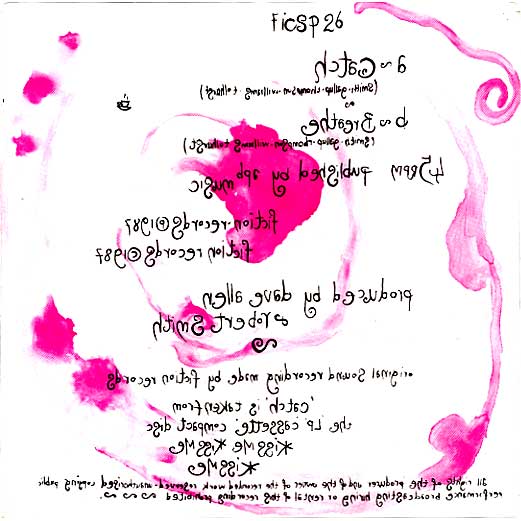 FicSp 26
a~Catch
(Smith·gallup·thompson·williams·tolhurst)
b~Breathe
(Smith·gallup·thompson·williams tolhurst)
45rpm published by apb
music
fiction·records℗1987
fiction records©1987
produced by dave allen
& robert Smith
original Sound recording made by fiction records
'catch' is taken from
the LP cassette compact disc
Kiss Me Kiss Me
Kiss Me
all rights of the producer of the owner of the recorded work reserved unauthorised copying public
performance broadcasting hiring or rental of this recording prohibited